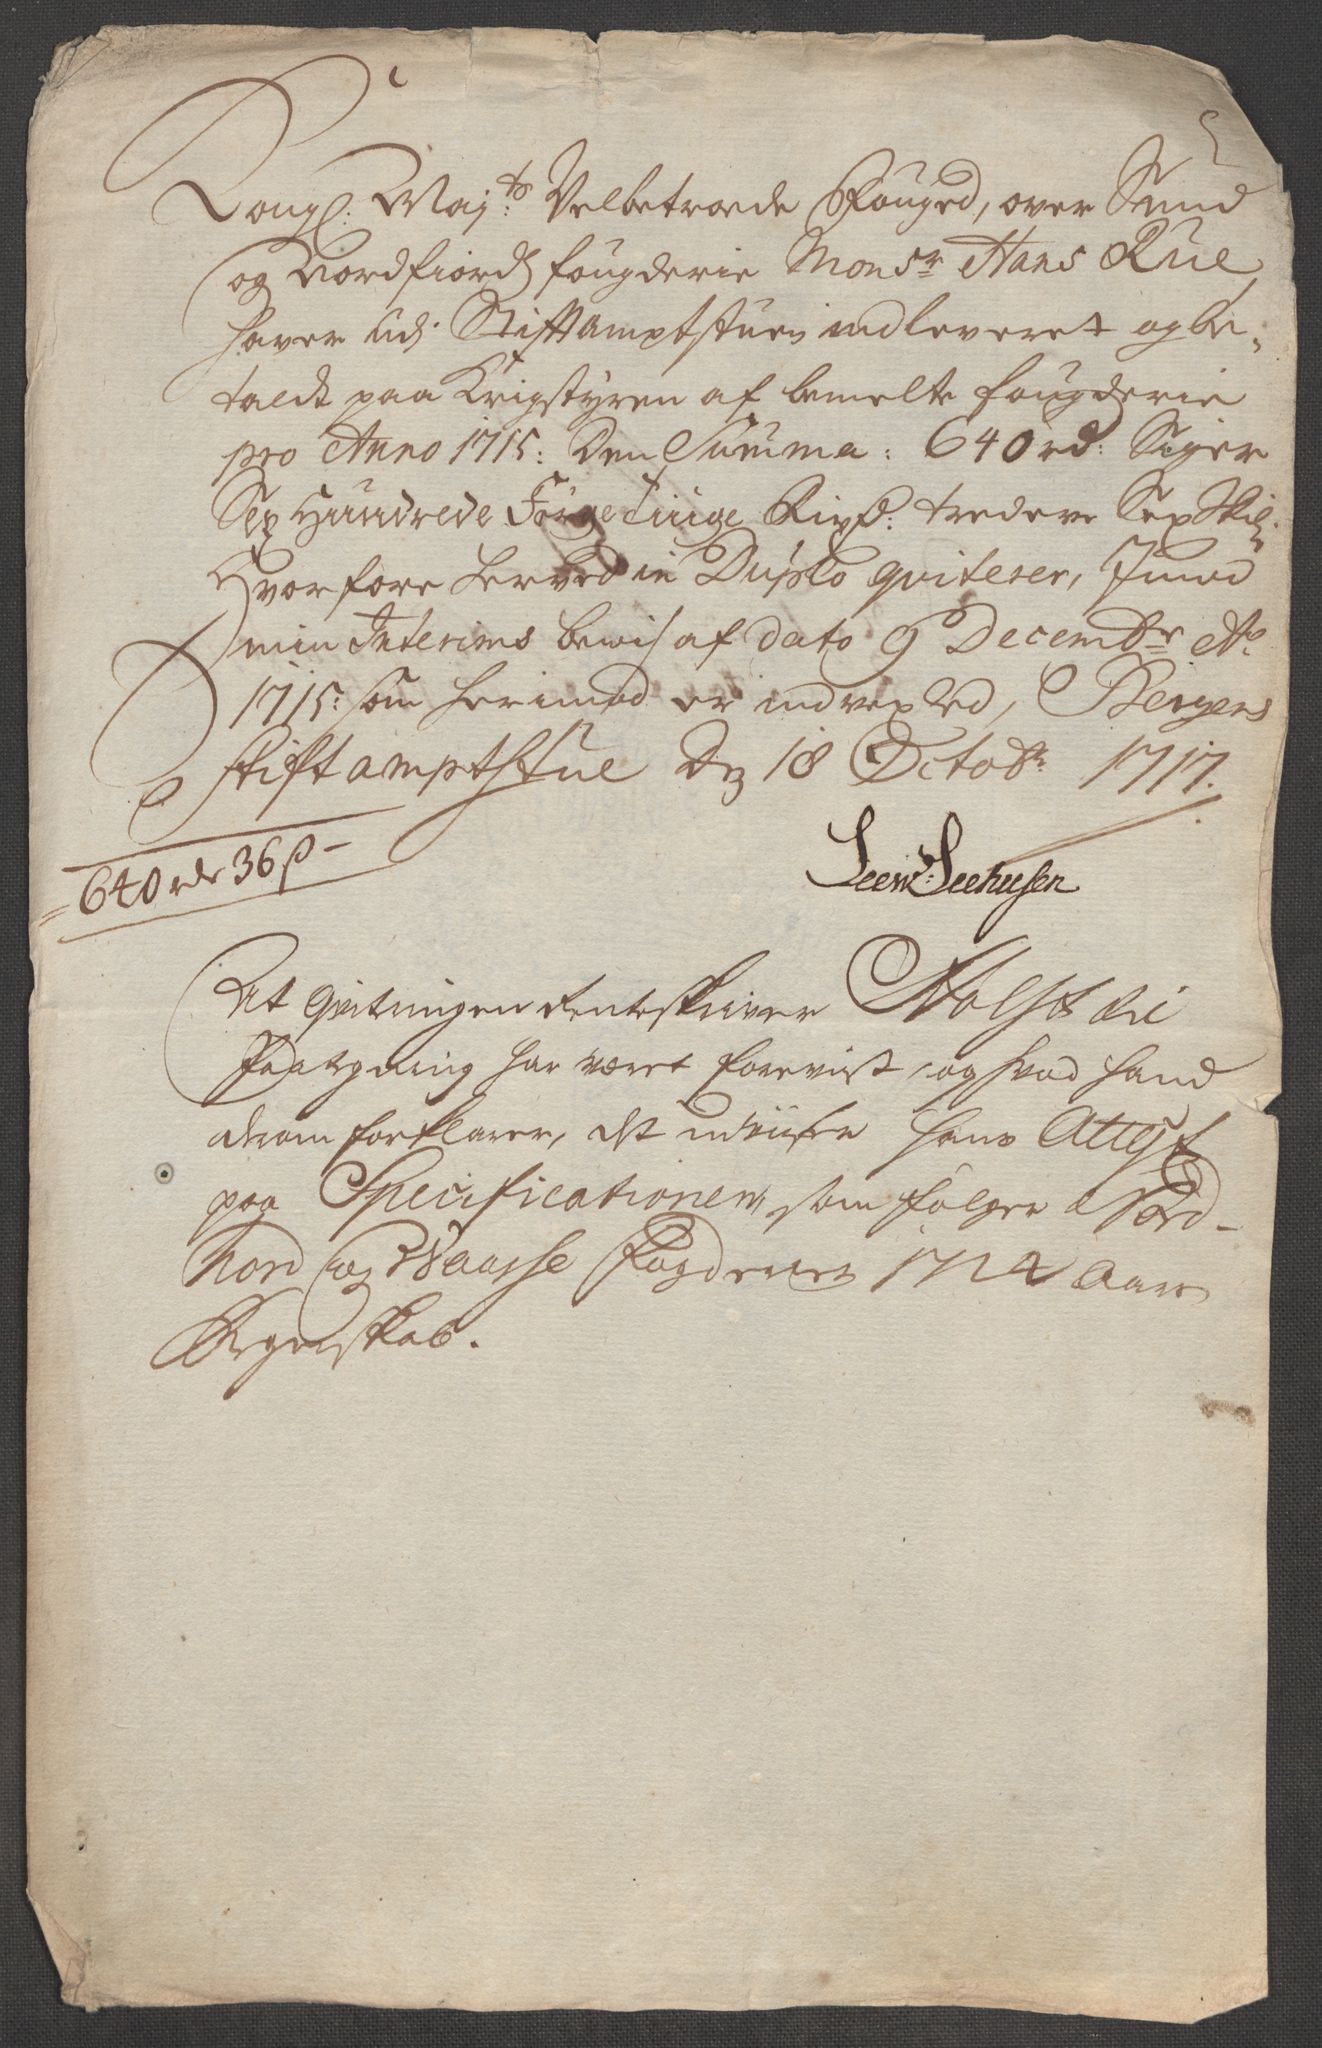 Kongl: Maj:ts Velbetroede Fouged, over Sund
og Nordfiords fougderie Monsr Hans Rue
haver udj Stiftamptstuen indleveret og be:
taldt paa Krigstyren af bemelte fougderie
pro Anno 1715: Den Summa: 640 rd: Siger
Sex Hundrede Förgetiuge Rixd: tredeve Sex Skil:
Hvorfore herved in Duplo qviterer, Jmod
min Interims beviis af dato 9 Decembr Ao
1715: som herimod er indvexled, Bergens
stiftamptstue Dn 18 Octobr 1717.
640 rdr 36 ß
Leew: Seehusen
At Qvitringen Renteskriver Holst til
Paategning har været forevist, og hvad hand
derom forklarer, det udviiser hans Attest
paa Specificationen, som følger
Nord og Waasse Fogderier 1714 Aars
Regenskab.